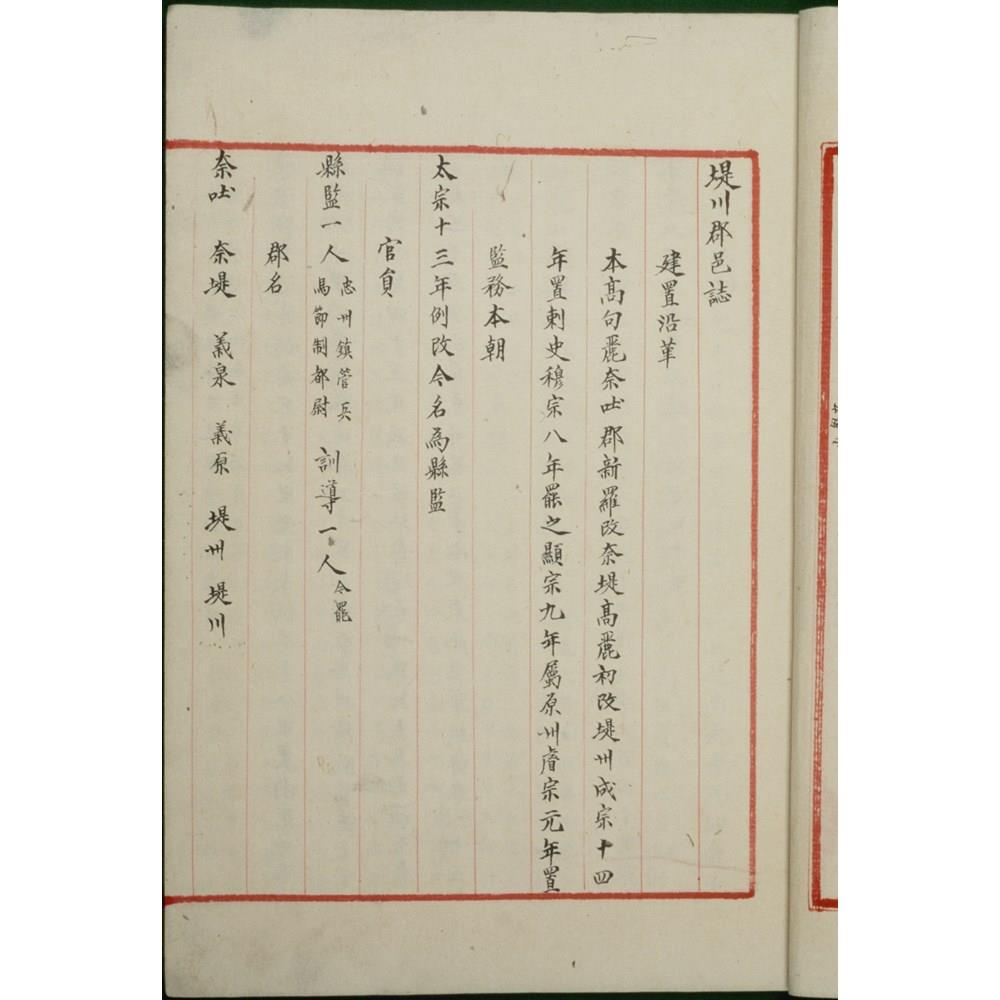 堤川郡邑誌
建置沿革
本高句麗奈吐郡新羅改奈堤高麗初改堤州成宗十四
年置刺史穆宗八年罷之顯宗九年屬原州睿宗元年置
監務本朝
太宗十三年例改今名為縣監
官負
縣監一人忠州鎮管兵馬節制都尉 訓導一人今罷
郡名
奈吐 奈堤 義泉 義原 堤州 堤川